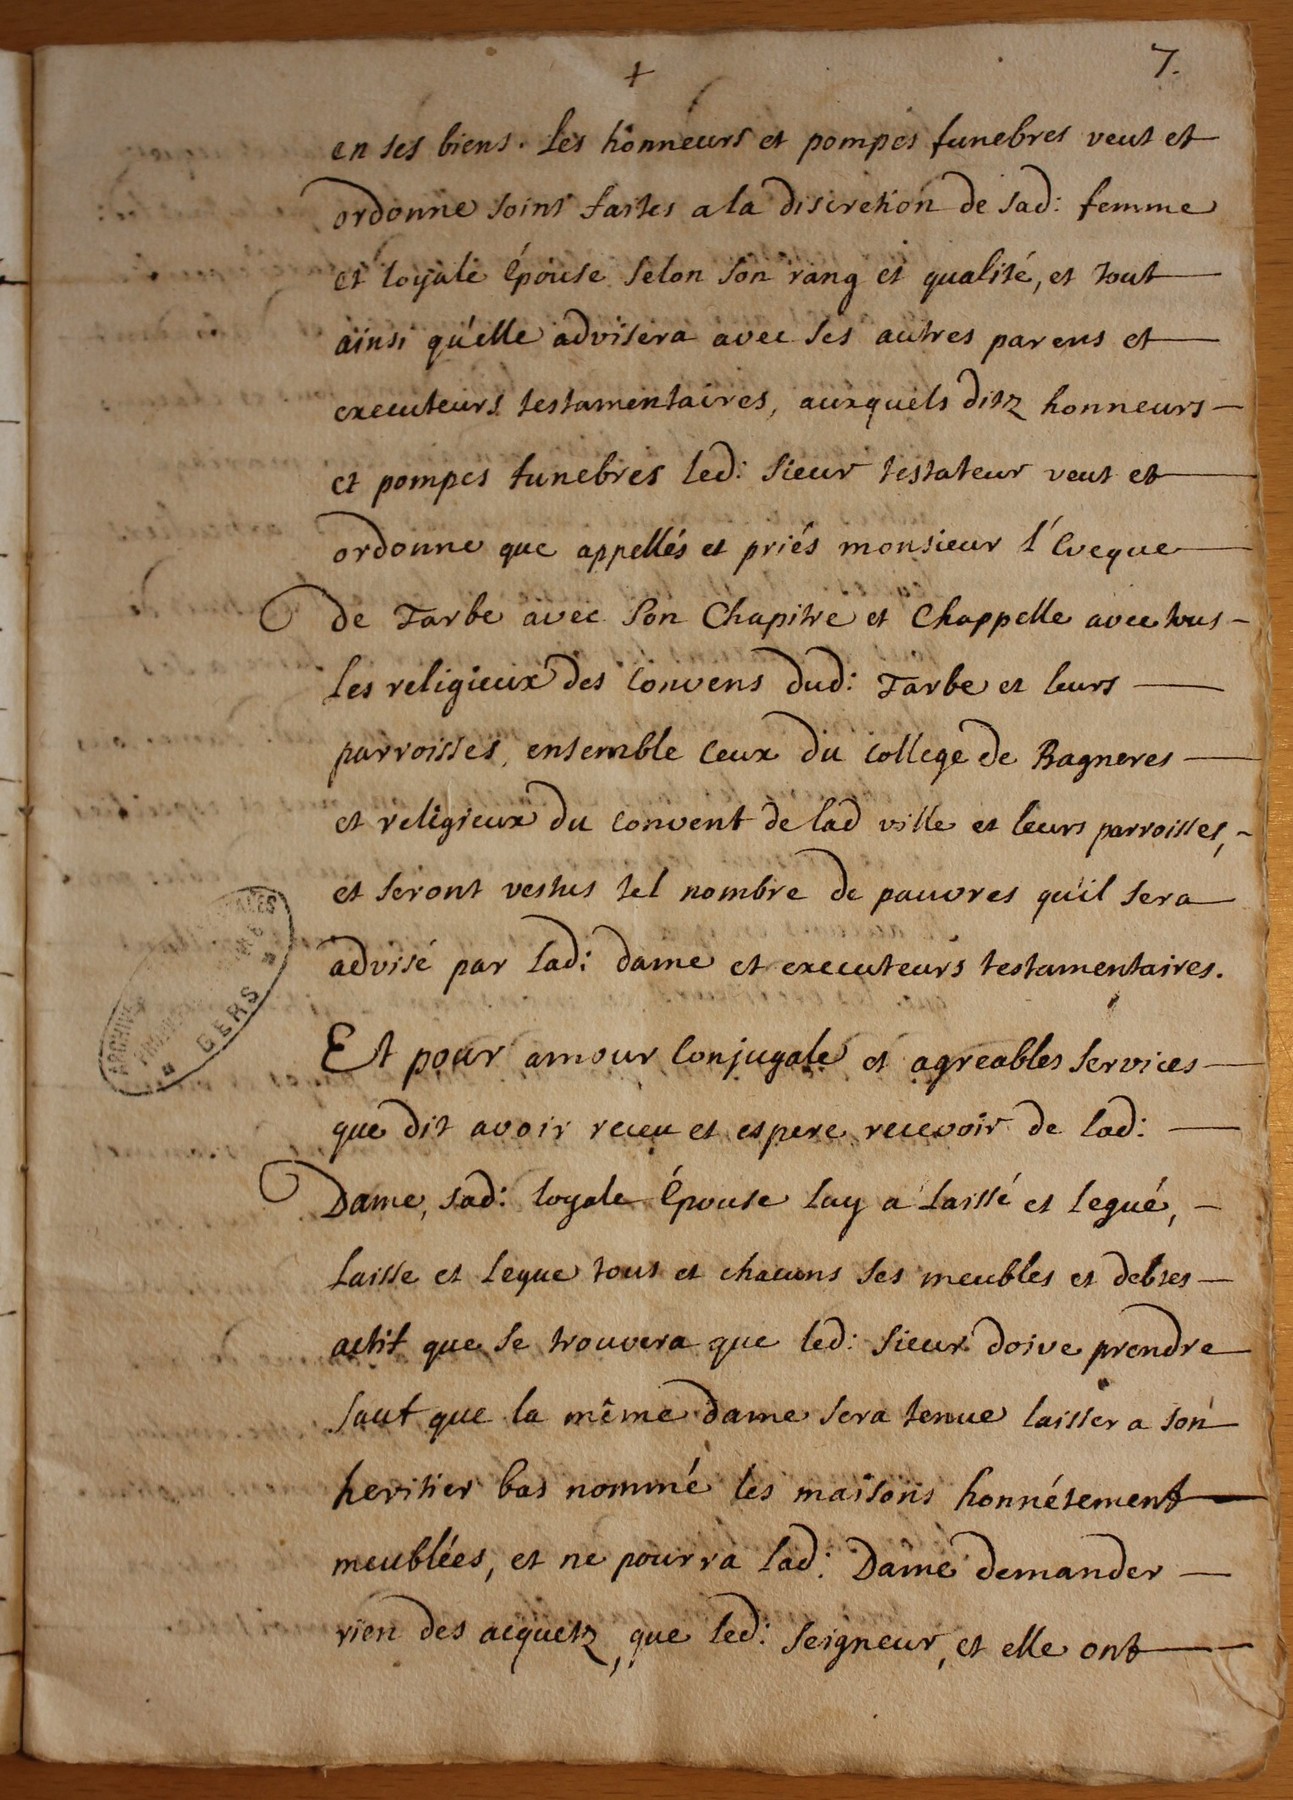 +
7.
en ses biens. Les honneurs et pompes funebres veut et
ordonne soint faites a la discretion de sad: femme
et loyale épouse selon son rang et qualité, et tout
ainsi qu'elle advisera avec ses autres parens et
executeurs testamentaires, auxquels ditz honneurs
et pompes funebres led: sieur testateur veut et
ordonne que appellés et priés monsieur l'éveque
de Tarbe avec son Chapitre et Chappelle avec tous
les religieux des convens dud: Tarbe et leurs
parroisses, ensemble ceux du college de Bagneres
et religieux du convent de lad ville et leurs parroisses,
et seront vestus tel nombre de pauvres qu'il sera
advisé par lad: dame et executeurs testamentaires.
Et pour amour conjugale et agreables services
que dit avoir receu et espere recevoir de lad:
Dame, sad: loyale épouse luy a laissé et legué,
laisse et legue tous et chacuns ses meubles et debtes
actif que se trouvera que led: sieur doive prendre
sauf que la même dame sera tenue laisser a son
heritier bas nommé les maisons honnétement
meublées, et ne pourra lad: Dame demander
rien des acquetz, que led: seigneur, et elle ont
ARCHIVES
GERS